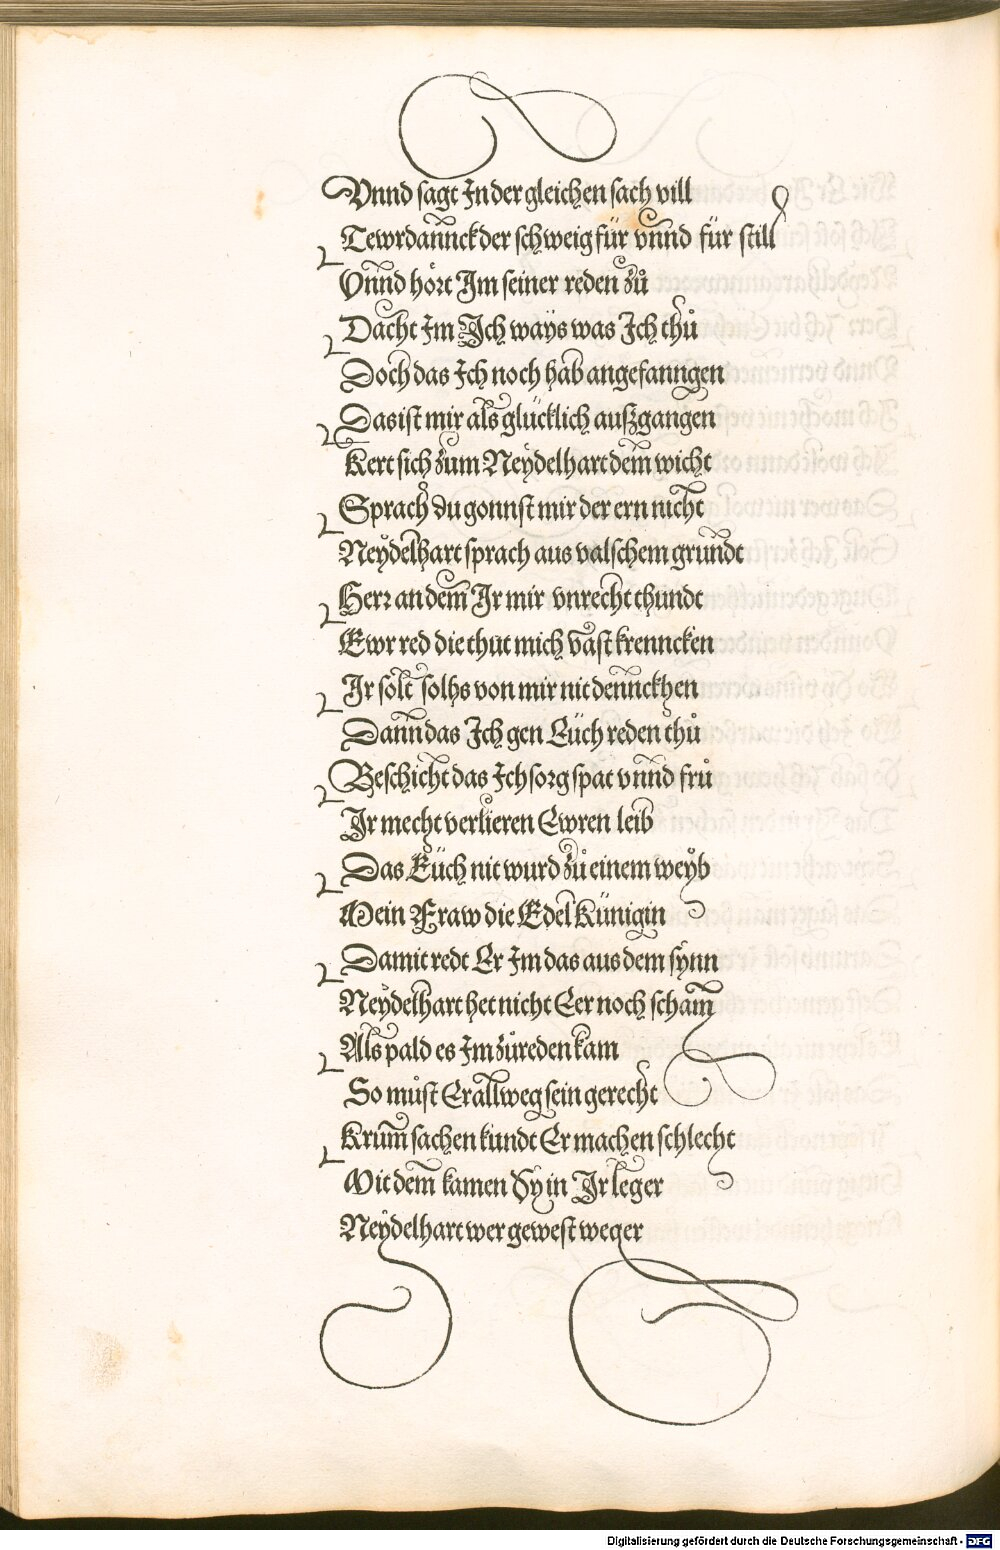 Vnnd sagt In der gleichen sach vill
Tewrdannck der schweig für vnnd für still
Vnnd hört Im seiner reden zů
Dacht Im Ich ways was Ich thů
Doch das Ich noch hab angefanngen
Das ist mir als glücklich außgangen
Kert sich zum Neydelhart dem wicht
Sprach du gonnst mir der ern nicht
Neydelhart sprach aus valschem grundt
Herr an dem Ir mir vnrecht thundt
Ewr red die thut mich vast krenncken
Ir solt solhs von mir nit dennckhen
Dann das Ich gen Eüch reden thů
Beschicht das Ich sorg spat vnnd frů
Ir mecht verlieren Ewren leib
Das Eüch nit wurd zů einem weyb
Mein Fraw die Edel Künigin
Damit redt Er Im das aus dem synn
Neydelhart het nicht Eer noch scham
Als pald es Im zůreden kam
So můst Er allweg sein gerecht
Krum sachen kundt Er machen schlecht
Mit dem kamen Sy in Ir leger
Neydelhart wer gewest weger
Digitalisierung gefördert durch die Deutsche Forschungsgemeinschaft - DFG